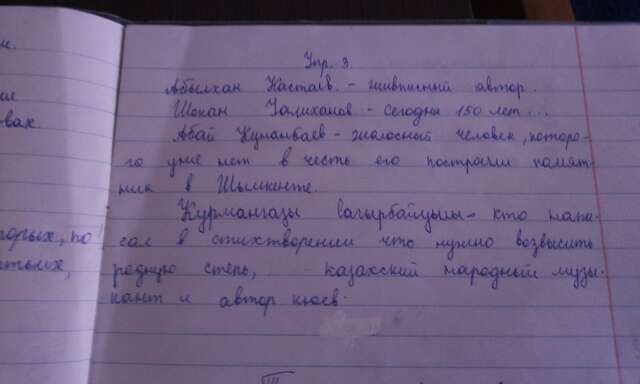 м.
ши
вах
горых, по
стых,
Упр. 3.
Абылхан Кастаев. - живписный автор.
Шокан Уалиханов - сегодня 150 лет...
Абай Кунанбаев - жалосный человек, которо-
го уже нет в честь его построили памят-
ник в Шымкенте.
Курмангазы Сагырбайұлы - кто напи-
сал в стихтворении что нужно возвысить
родную степь, казахский народный музы-
кант и автор кюев.
III